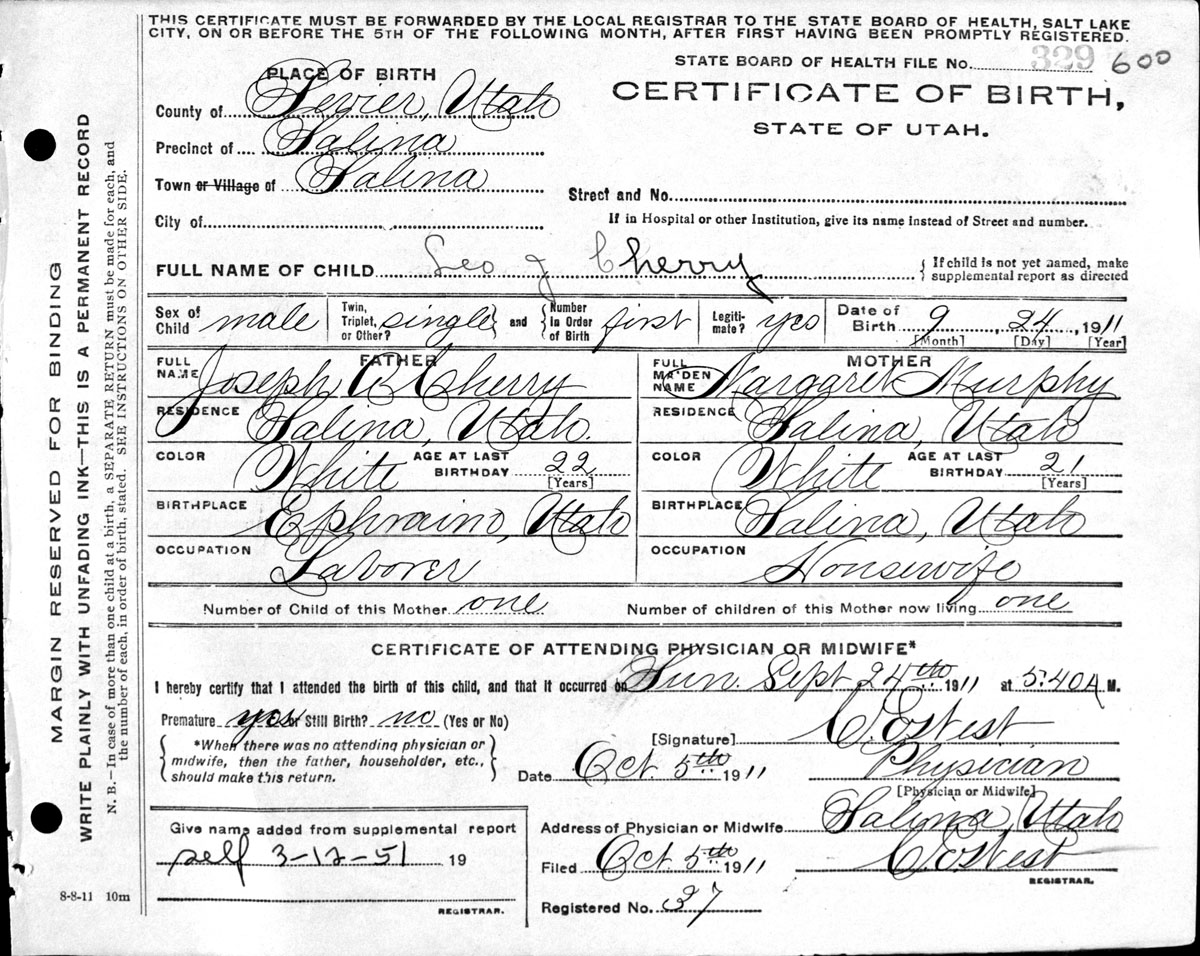 THIS CERTIFICATE MUST BE FORWARDED BY THE LOCAL REGISTRAR TO THE STATE BOARD OF HEALTH, SALT LAKE
CITY, ON OR BEFORE THE 5TH OF THE FOLLOWING MONTH, AFTER FIRST HAVING BEEN PROMPTLY REGISTERED.
STATE BOARD OF HEALTH FILE No. 329 600
PLACE OF BIRTH
CERTIFICATE OF BIRTH,
STATE OF UTAH.
County of Sevier, Utah
Precinct of Salina
Town or Village of Salina
Street and No.
City of
If in Hospital or other Institution, give its name instead of Street and number.
FULL NAME OF CHILD Leo J Cherry
If child is not yet named, make
supplemental report as directed
Sex of Child male
Twin, Triplet, or Other? single and Number In Order of Birth first
Legiti-mate? yes
Date of Birth 9 24, 1911
[Month] [Day] [Year]
FATHER
FULL NAME Joseph A Cherry
RESIDENCE Salina, Utah.
COLOR White AGE AT LAST BIRTHDAY 22
[Years]
BIRTHPLACE Ephraim, Utah
OCCUPATION Laborer
MOTHER
FULL MAIDEN NAME Margaret Murphy
RESIDENCE Salina, Utah
COLOR White AGE AT LAST BIRTHDAY 21
[Years]
BIRTHPLACE Salina, Utah
OCCUPATION Housewife
Number of Child of this Mother one Number of children of this Mother now living one
CERTIFICATE OF ATTENDING PHYSICIAN OR MIDWIFE*
I hereby certify that I attended the birth of this child, and that it occurred on Sun. Sept 24th 1911 at 5:40A M.
Premature yes or Still Birth? no (Yes or No)
*When there was no attending physician or
midwife, then the father, householder, etc.,
should make this return.
[Signature] C. E. West
Date Oct 5th 1911 Physician
[Physician or Midwife]
Address of Physician or Midwife Salina, Utah
Filed Oct 5th 1911 C. E. West
REGISTRAR.
Registered No. 37
Give name added from supplemental report
self 3-12-51 19
REGISTRAR.
8-8-11 10m
MARGIN RESERVED FOR BINDING
WRITE PLAINLY WITH UNFADING INK—THIS IS A PERMANENT RECORD
N. B.—In case of more than one child at a birth, a SEPARATE RETURN must be made for each, and
the number of each, in order of birth, stated. SEE INSTRUCTIONS ON OTHER SIDE.